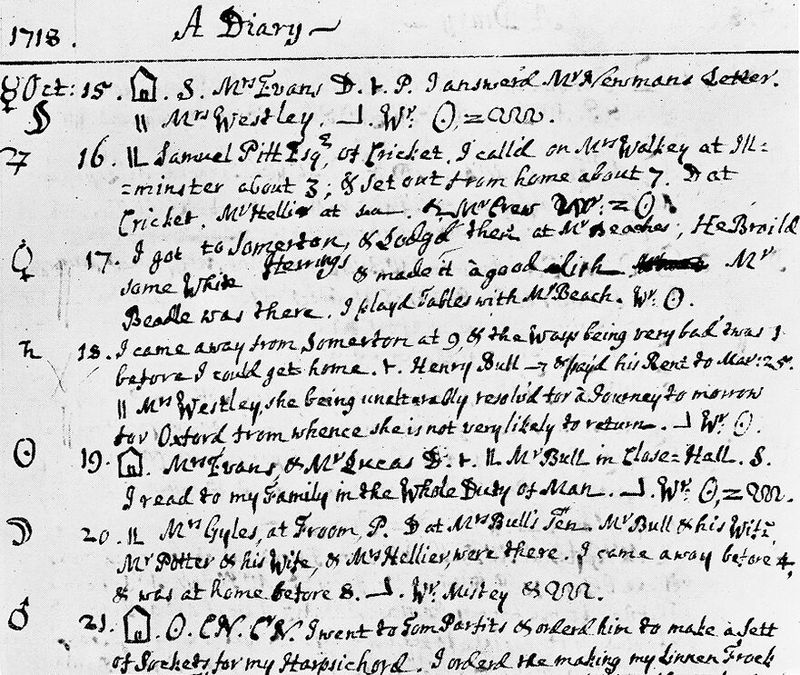 1718. A Diary
☿ Oct: 15. S. Mrs Evans D. t. P. I answerd Mr Newmans Letter.
|| Mrs Westley. Wr. ☉, =
♃ 16. Samuel Pitt Esqr, of Cricket. I call'd on Mrs Walkey at Ill=
=minster about 3; & set out from home about 7. D at
Cricket. Mr Hellier at sea. & Mr Crew Wr: = ☉
♀ 17. I got to Somerton, & Lodg'd there at Mr Beaches, He Broild
some White Herrings & made it a good dish Mr
Beadle was there. I playd Tables with Mr Beach. Wr. ☉.
♄ 18. I came away from Somerton at 9, & the Ways being very bad twas 1
before I could get home. t. Henry Bull & payd his Rent to Mar: 25.
|| Mrs Westley, she being unalterably resolv'd for a Journey to morrow
for Oxford from whence she is not very likely to return. Wr ☉.
☉ 19. Mrs Evans & Mr Lucas D. t. Mr Bull in Close=Hall. S.
I read to my Family in the Whole Duty of Man. Wr. ☉, =
☽ 20. Mrs Gyles, at Froom, P. D at Mrs Bull's Sen. Mr Bull & his Wife,
Mr Potter & his Wife, & Mrs Hellier, were there. I came away before 4,
& was at home before 8. Wr. Mistey &
♂ 21. ☉. I went to Tom Parfits & orderd him to make a Sett
of Sockets for my Harpsichord. I orderd the making my Linnen Frock